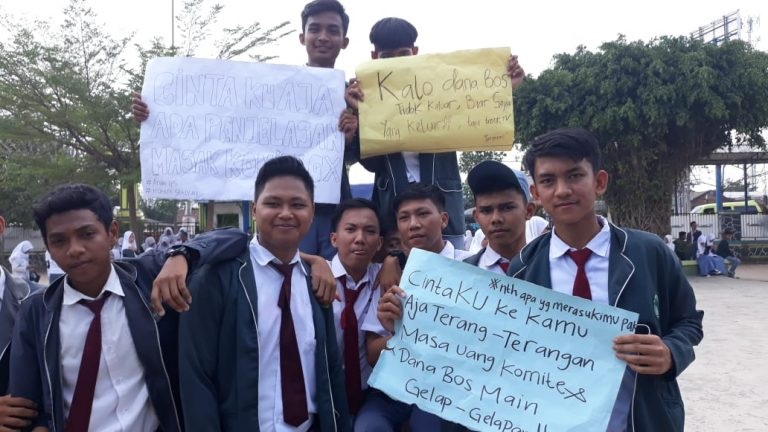 CINTA KU AJA
ADA PENJELASAN
MASAK KOMITE GX
Kalo dana Bos
Tidak Keluar, Biar Saya
Yang Keluar!!,
※nth apa yg merasukimu pak
CintaKU ke Kamu
Aja Terang-Terangan
Masa uang Komite &
Dana Bos Main
Gelap-Gelapan!!